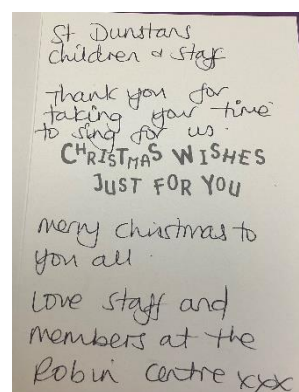 St Dunstans
children & staff
Thank you for
taking your time
to sing for us.
CHRISTMAS WISHES
JUST FOR YOU
merry christmas to
you all.
Love staff and
members at the
Robin Centre xxx